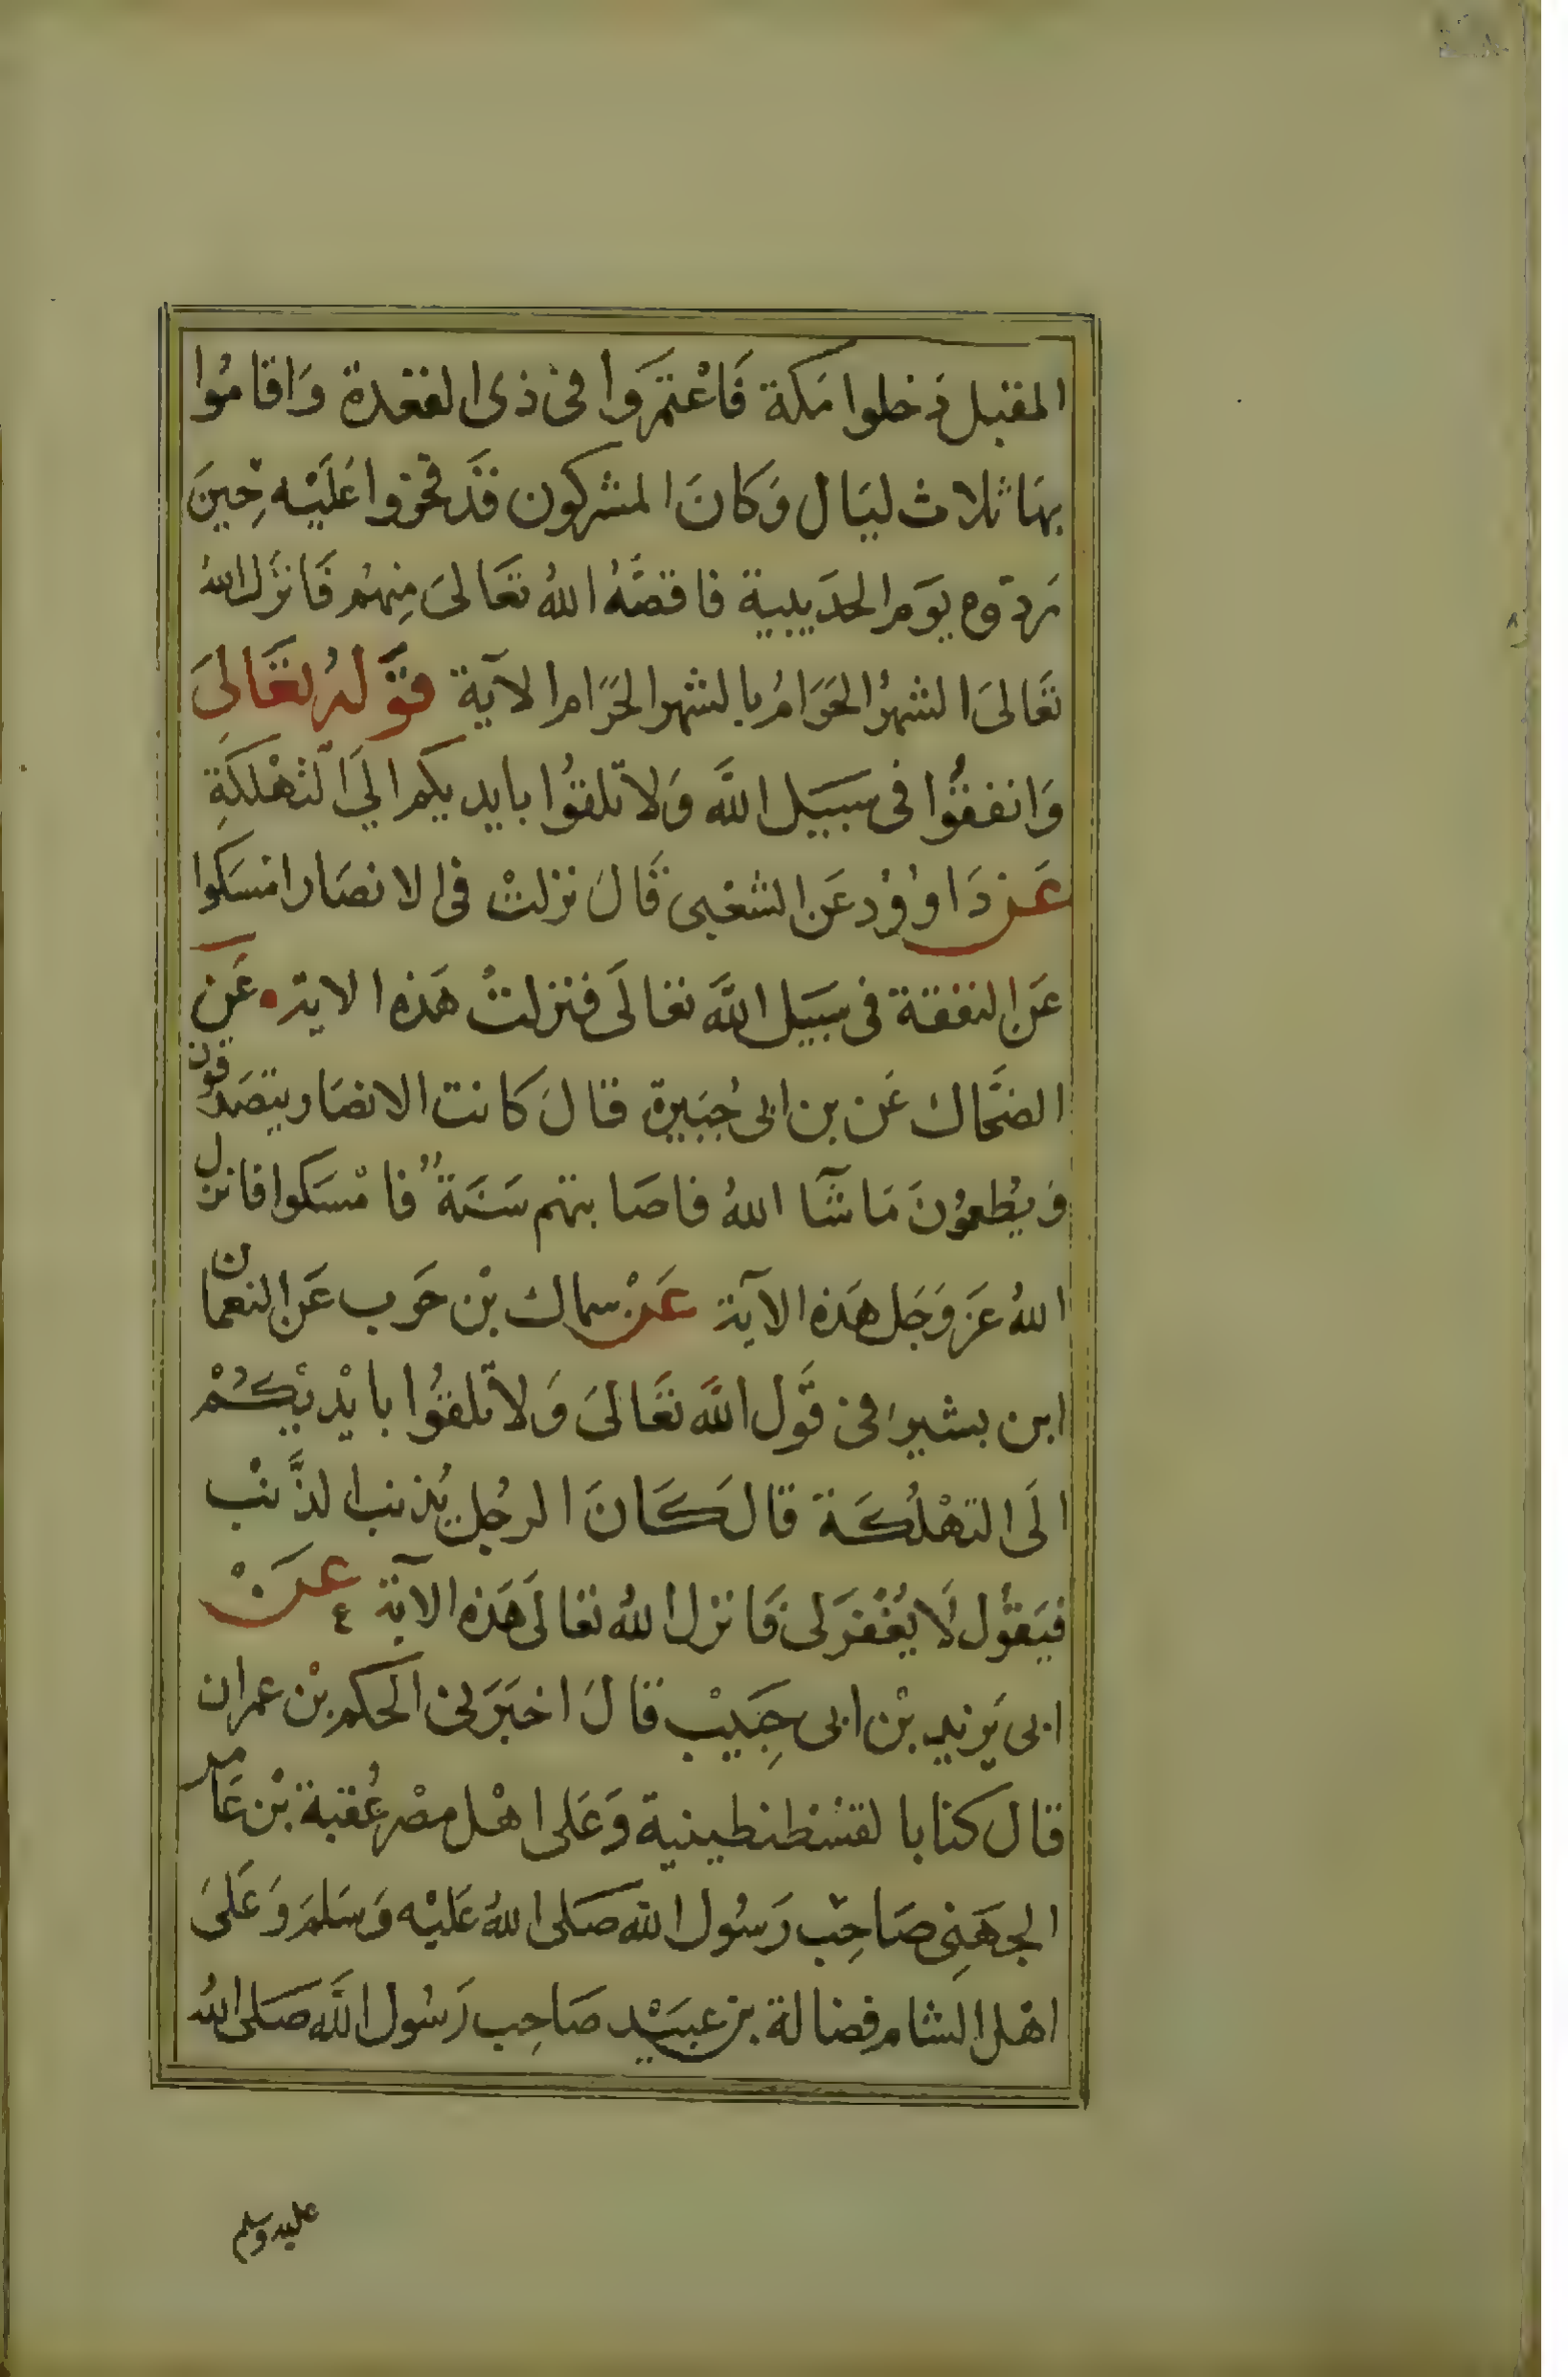 المقبل دَخلوا مَكة فَاعْتَمَروا فى ذى القعدة وَاقامُوا
بهَا ثلاث ليَال وَكانَ المشركون قَد فخروا عَلَيْه حِينَ
رَدّوه يوَم الحدَيبية فاقصَّهُ اللهُ تعَالىَ مِنهُم فَانزَل اللهُ
تعَالىَ الشهرُ الحَرَامُ بالشهر الحَرَام الآية قوَلهُ تعَالىَ
وَانفقُوا فى سبيَل اللَّه وَلا تلقوُا بايديكم الَي التهْلكَةِ
عَن دَاوُوْد عَن الشعْبى قَالَ نزلتْ فى الانصَار امسَكوا
عَن النفقة فى سبَيل اللَّه تعَالَى فنزلتْ هَذه الاية عَن
الضحَّاك عَن بن ابى جُبَيرة قالَ كانت الانصَار يتصَدقون
وَيُطعمُونَ مَا شَآ اللهُ فاصَابتهم سَنَة فامْسَكوا فانزل
اللهُ عَز وَجَل هَذه الآية عَنْ سماك بْن حَرب عَن النعمان
ابن بشير فى قَول اللَّه تعَالىَ وَلا تلقوُا بايْديْكُمْ
الَى التهْلُكَة قال كَانَ الرجُل يُذنب الذَّنْب
فيَقوُل لَا يُغْفرَ لى فَانزل اللهُ تعَالَى هَذه الآية عَنْ
ابى يَزيد بْن ابى حِبَيبْ قالَ اخبَرَنى الحكم بْن عمران
قال كنا بالقسْطنطينية وَعَلى اهْل مصْر عُقبة بْن عَامر
الجهَنِى صَاحِب رَسُول الله صَلى اللهُ عَليْه وَسَلمَ وَعَلىَ
اهْل الشام فضالة بن عبَيْد صَاحِب رَسُول اللَّه صَلى اللهُ
عليه وسلم